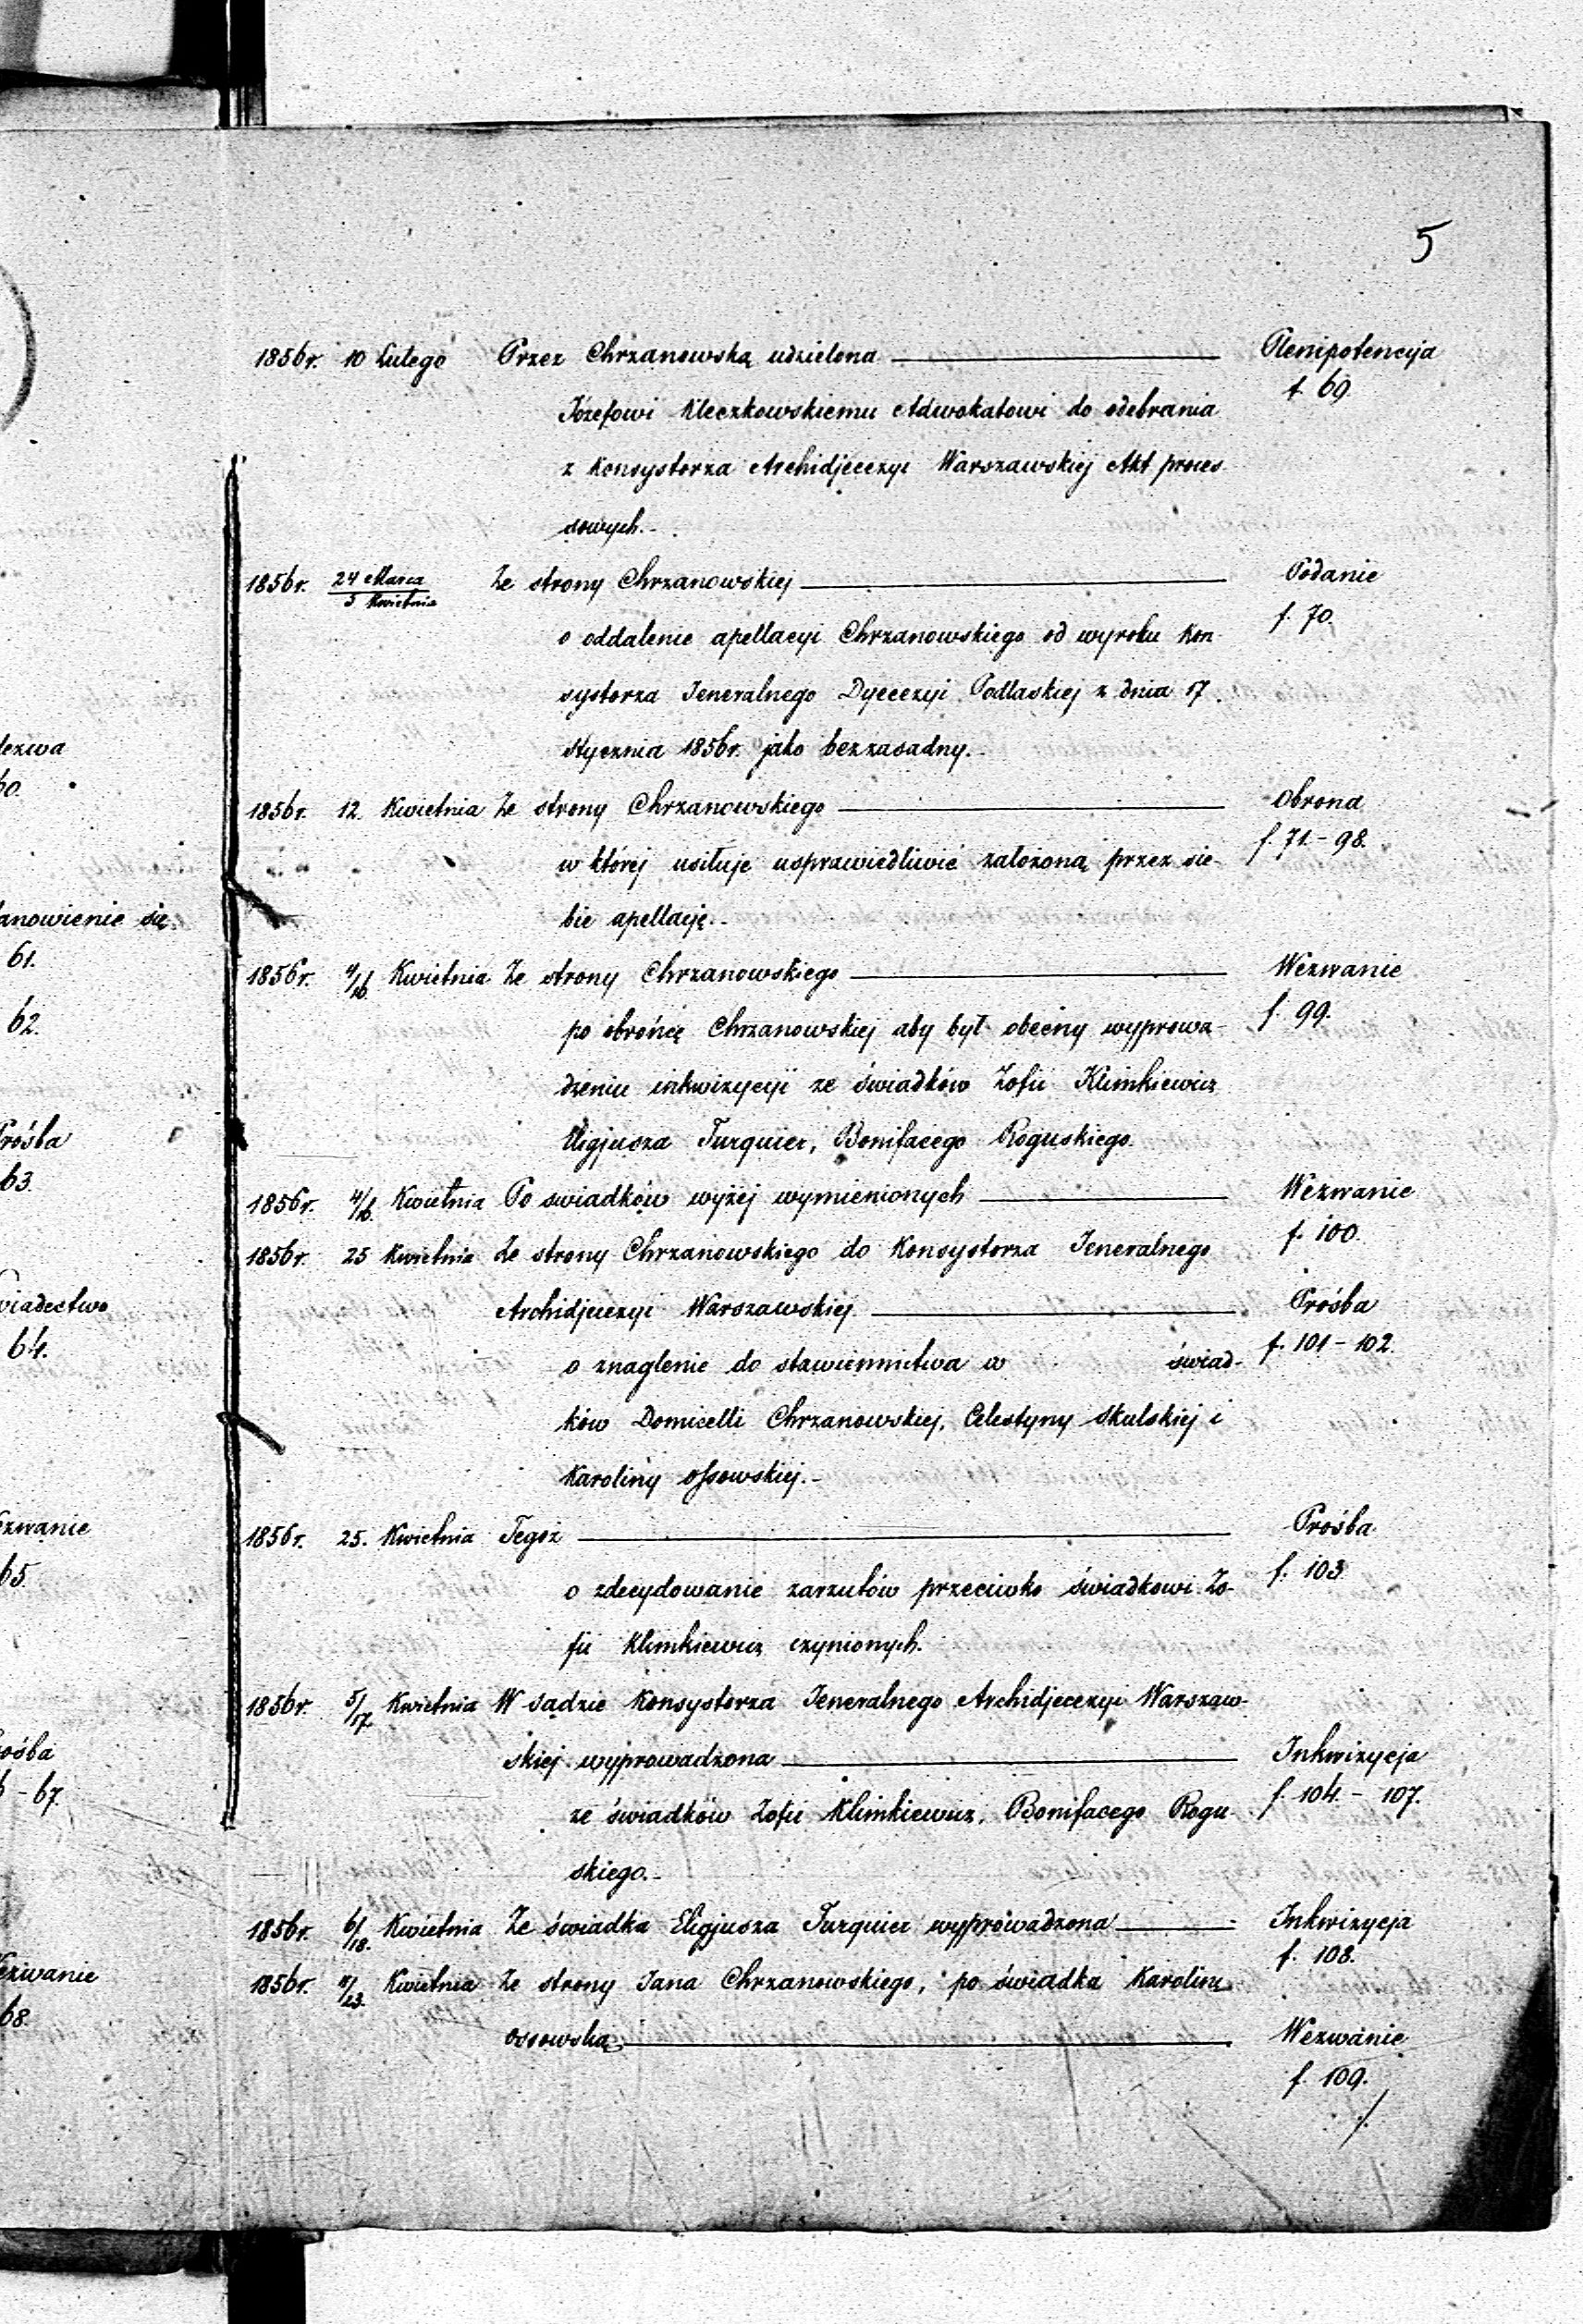 5
1856r. 10 Lutego Przez Chrzanowską udzielona Plenipotencija
f. 69.
Józefowi Kleczkowskiemu Adwokatowi do odebrania
z Konsystorza Archidjecezyi Warszawskiej Akt proces
sowych.-
1856r. 24 Marca / 5 Kwietnia Ze strony Chrzanowskiej Podanie
f. 70.
o oddalenie apellacyi Chrzanowskiego od wyroku Kon-
systorza Jeneralnego Dyecezyi Podlaskiej z dnia 17
Stycznia 1856r. jako bezzasadny.-
1856r. 12. Kwietnia Ze strony Chrzanowskiego Obrona
f. 71.-98.
w której usiłuje usprawiedliwić założoną przez sie-
bie apellację.-
1856r. 4/16. Kwietnia Ze strony Chrzanowskiego Wezwanie
f. 99.
po obrońcę Chrzanowskiej aby był obecny wyprowa-
dzeniu inkwizycyi ze świadków Zofii Klimkiewicz
Eligjusza Turquier, Bonifacego Roguskiego.
1856r. 4/16. Kwietnia Po swiadków wyżej wymienionych Wezwanie
f. 100.
1856r. 25 Kwietnia Ze strony Chrzanowskiego do Konsystorza Jeneralnego
Archidjecezyi Warszawskiej Prośba
f. 101-102.
o znaglenie do stawiennictwa w świad-
ków Domicelli Chrzanowskiej, Celestyny Skulskiej i
Karoliny Ossowskiej.-
1856r. 25. Kwietnia Tegoż Prośba
f. 103
o zdecydowanie zarzutów przeciwko świadkowi Zo-
fii Klimkiewicz czynionych.
1856r. 5/17. Kwietnia W sądzie Konsystorza Jeneralnego Archidjecezyi Warszaw-
skiej wyprowadzona Inkwizycja
f. 104.-107.
ze świadków Zofii Klimkiewicz, Bonifacego Rogu-
skiego.-
1856r. 6/18. Kwietnia Ze świadka Eligjusza Turquier wyprowadzona Inkwizycja
f. 108.
1856r. 11/23. Kwietnia Ze strony Jana Chrzanowskiego, po świadka Karolinę
Ossowską Wezwanie
f. 109.
./.
61.
62.
Prośba
63.
64.
65.
-67.
68.